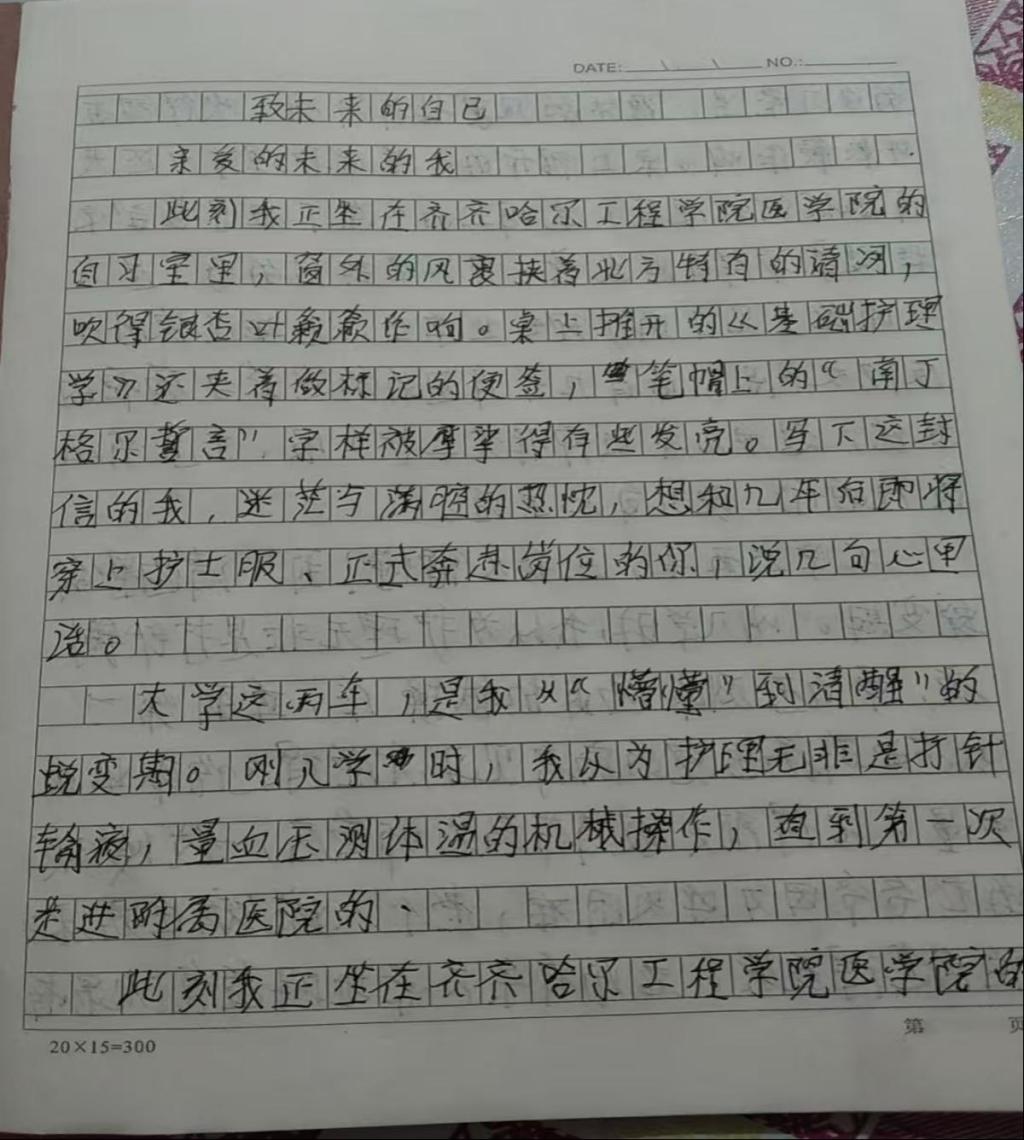 DATE: \ \ NO.:
致未来的自己
亲爱的未来的我
此刻我正坐在齐齐哈尔工程学院医学院的
自习室里，窗外的风裹挟着北方特有的清冽，
吹得银杏叶簌簌作响。桌上摊开的《基础护理
学》还夹着做标记的便签，笔帽上的“南丁
格尔誓言”字样被摩挲得有些发亮。写下这封
信的我，迷茫与满腔的热忱，想和几年后即将
穿上护士服、正式奔赴岗位的你，说几句心里
话。
大学这两年，是我从“懵懂”到清醒”的
蜕变期。刚入学时，我以为护理无非是打针
输液，量血压测体温的机械操作，直到第一次
走进附属医院的
此刻我正坐在齐齐哈尔工程学院医学院的
第 页
20×15=300